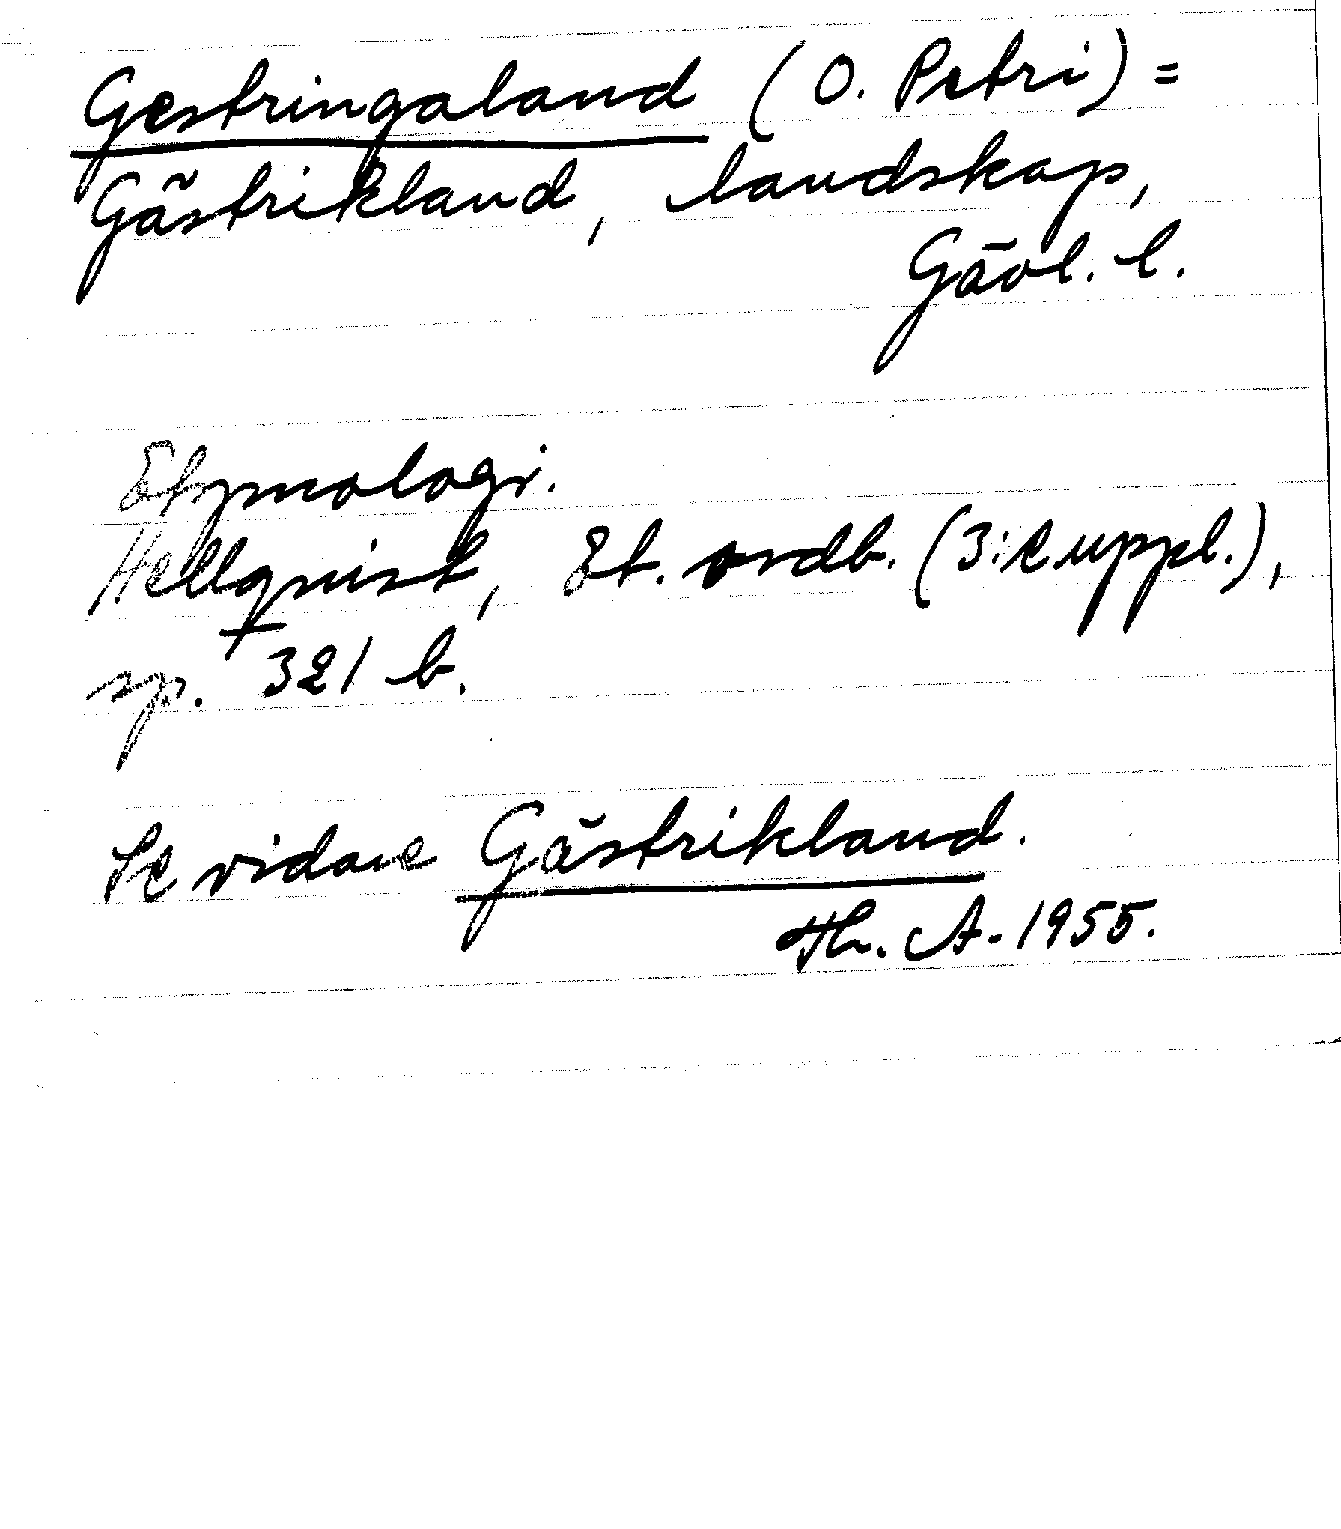 Gestringaland (O. Petri) =
Gästrikland, landskap,
Gävl. l.
Etymologi.
Hellquist, Et. ordb. (3:e uppl.),
sp. 321 b.
Se vidare Gästrikland.
Th. A. 1955.